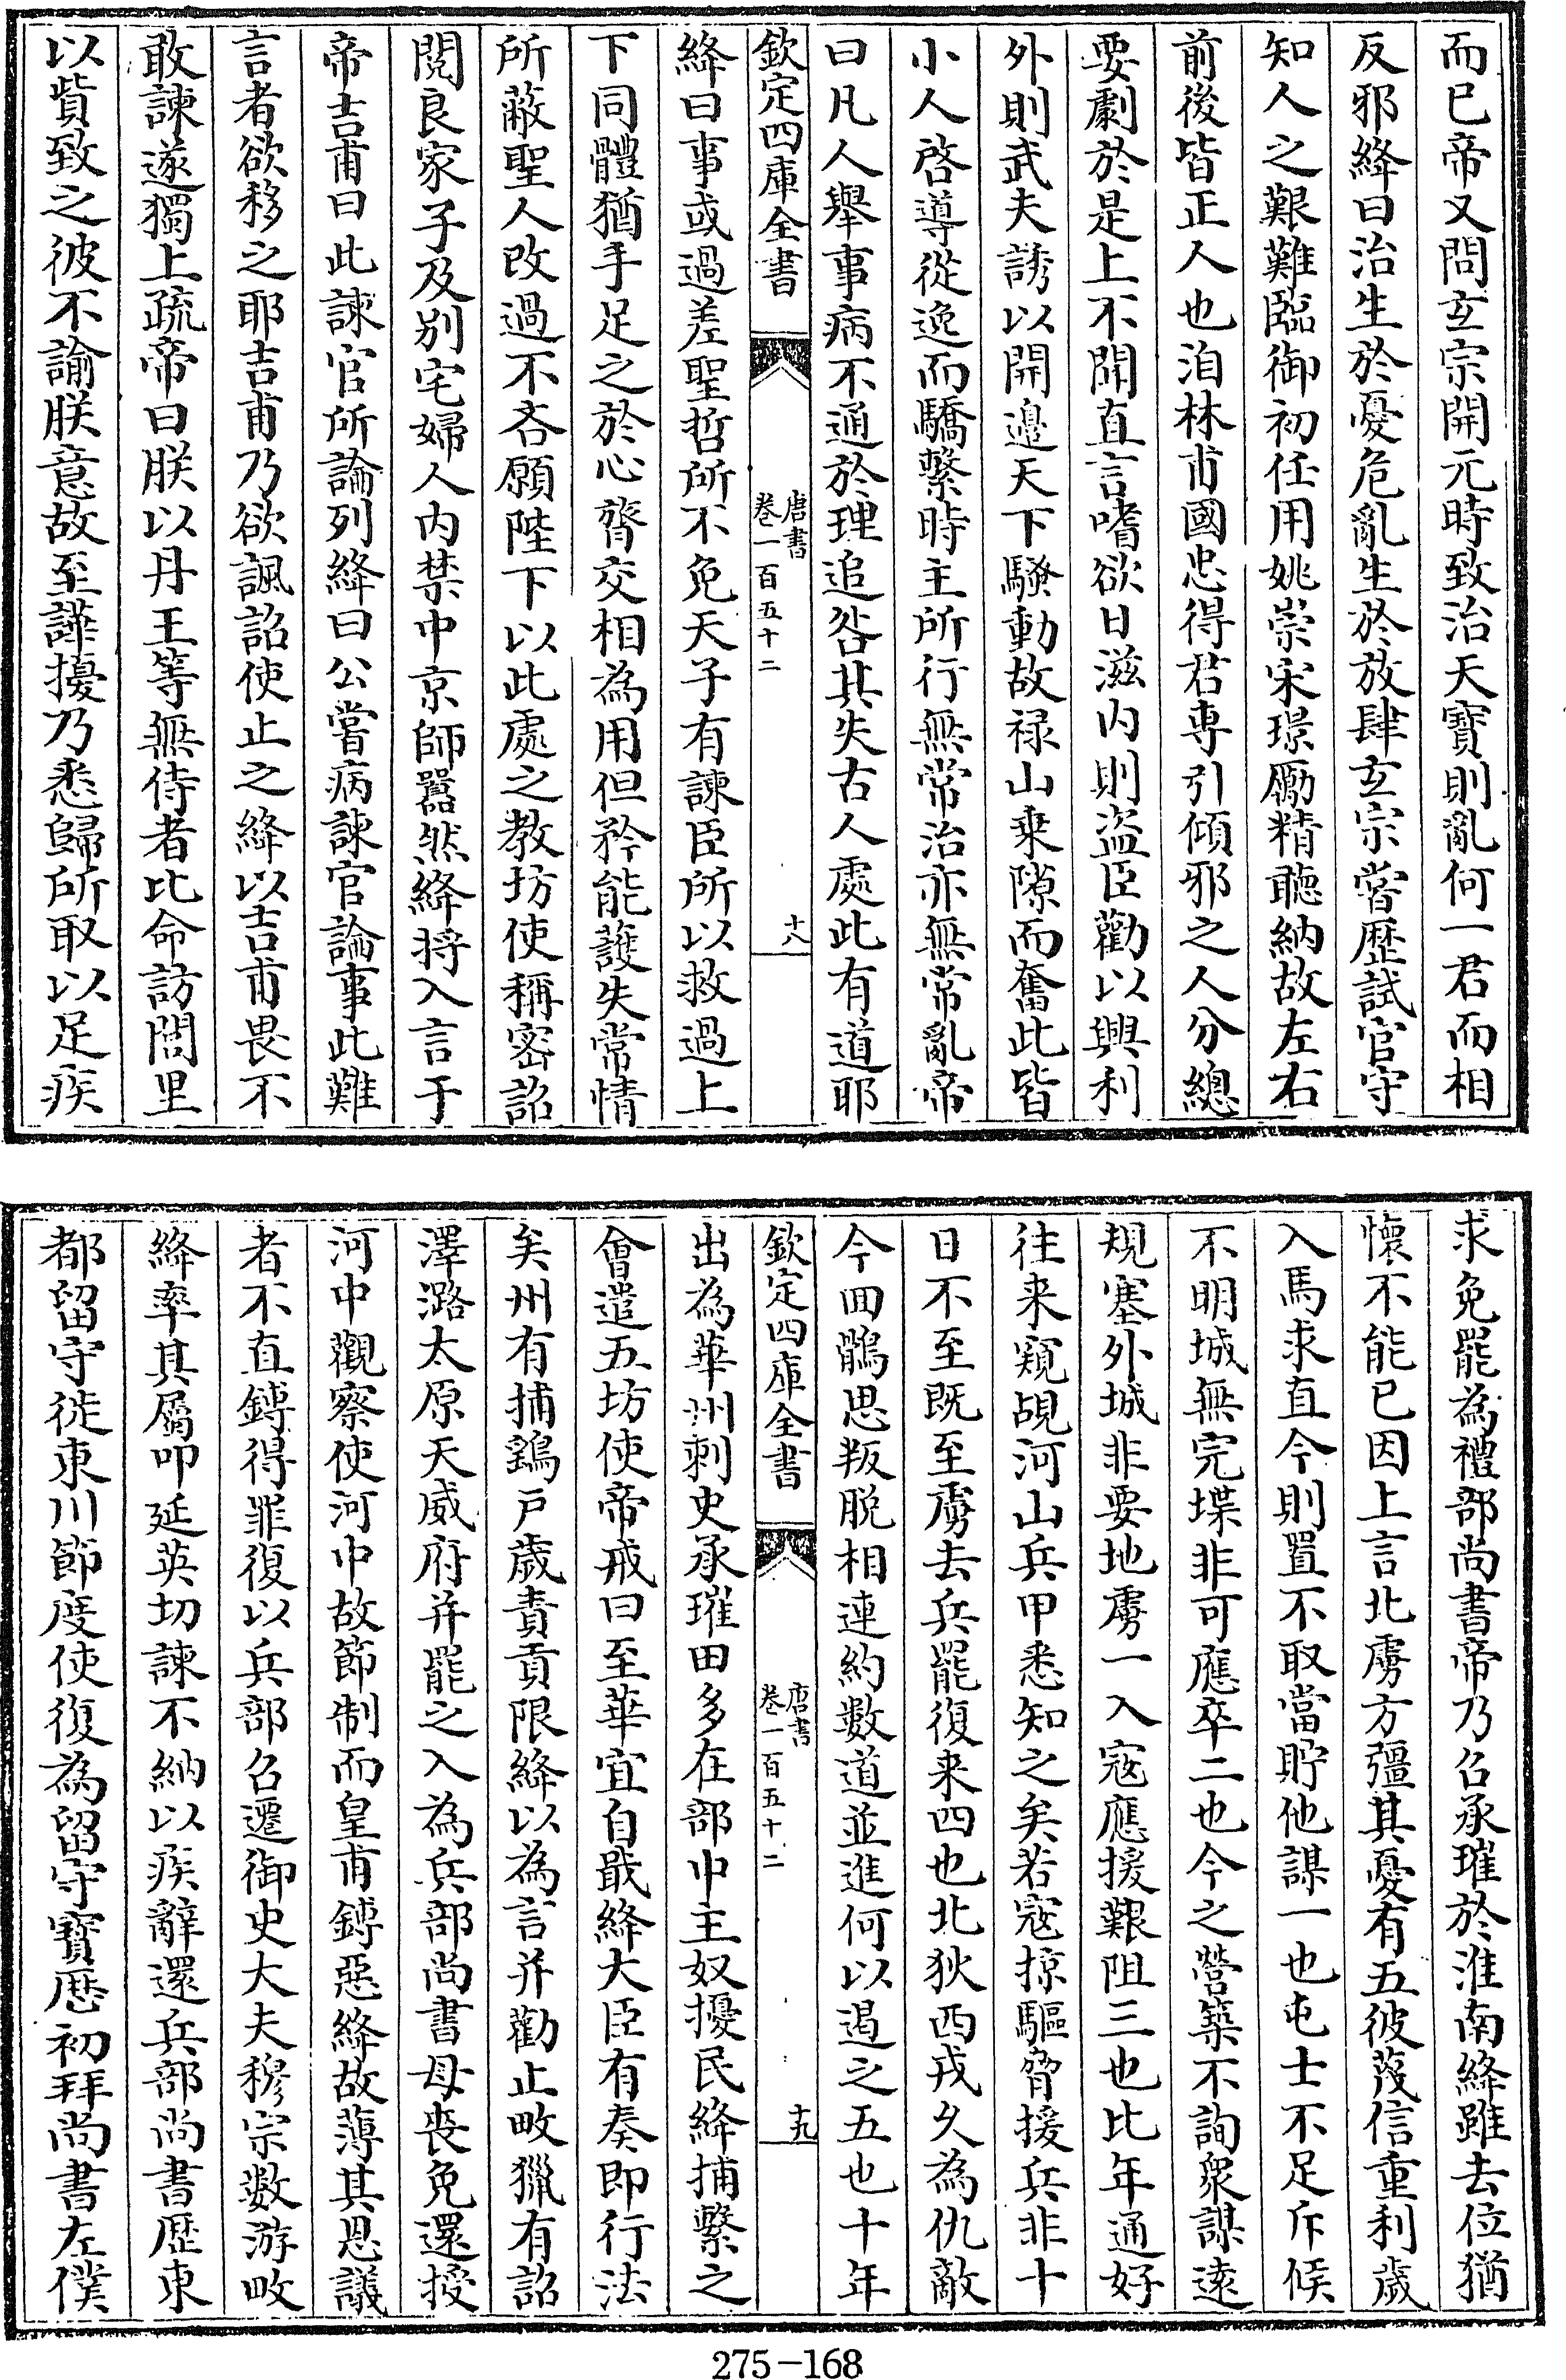 而已帝又問玄宗開元時致治天寶則亂何一君而相
反邪絳曰治生於憂危亂生於放肆玄宗嘗歴試官守
知人之艱難臨御初任用姚崇宋璟勵精聽納故左右
前後皆正人也洎林甫國忠得君専引傾邪之人分總
要劇於是上不聞直言嗜欲日滋内則盗臣勸以興利
外則武夫誘以開邊天下騷動故禄山乗隙而奮此皆
小人啓導從逸而驕繫時主所行無常治亦無常亂帝
曰凡人舉事病不通於理追咎其失古人處此有道耶
欽定四庫全書
唐書
卷一百五十二
十八
絳曰事或過差聖哲所不免天子有諫臣所以救過上
下同體猶手足之於心膂交相為用但矜能護失常情
所蔽聖人改過不吝願陛下以此處之教坊使稱密詔
閲良家子及别宅婦人内禁中京師囂然絳将入言于
帝吉甫曰此諫官所論列絳曰公嘗病諫官論事此難
言者欲移之耶吉甫乃欲諷詔使止之絳以吉甫畏不
敢諫遂獨上疏帝曰朕以丹王等無侍者比命訪閭里
以貲致之彼不諭朕意故至譁擾乃悉歸所取以足疾
求免罷為禮部尚書帝乃召承璀於淮南絳雖去位猶
懷不能已因上言北虜方彊其憂有五彼蔑信重利歲
入馬求直今則置不取當貯他謀一也屯士不足斥候
不明城無完堞非可應卒二也今之營築不詢衆謀逺
規塞外城非要地虜一入宼應援艱阻三也比年通好
往来窺覘河山兵甲悉知之矣若宼掠驅脅援兵非十
日不至既至虜去兵罷復来四也北狄西戎久為仇敵
今回鶻思叛脱相連約數道並進何以遏之五也十年
欽定四庫全書
唐書
卷一百五十二
十九
出為華州刺史承璀田多在部中主奴擾民絳捕繫之
會遣五坊使帝戒曰至華宜自戢絳大臣有奏即行法
矣州有捕鷂戸歲責貢限絳以為言并勸止畋獵有詔
澤潞太原天威府并罷之入為兵部尚書母喪免還授
河中觀察使河中故節制而皇甫鎛惡絳故薄其恩議
者不直鎛得罪復以兵部召遷御史大夫穆宗數游畋
絳率其屬叩延英切諫不納以疾辭還兵部尚書歴東
都留守徙東川節度使復為留守寳厯初拜尚書左僕
275-168